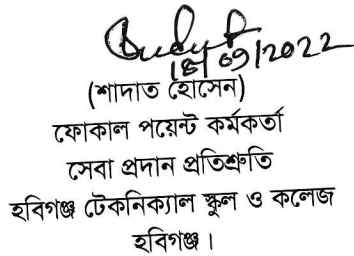 18/09/2022
(শাদাত হোসেন)
ফোকাল পয়েন্ট কর্মকর্তা
সেবা প্রদান প্রতিশ্রুতি
হবিগঞ্জ টেকনিক্যাল স্কুল ও কলেজ
হবিগঞ্জ।